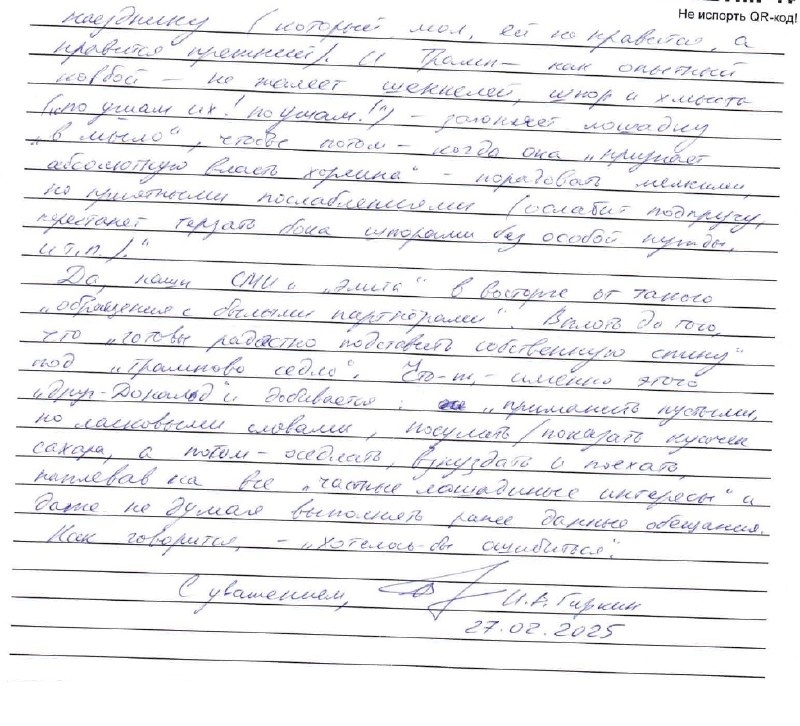 Не испорть QR-код!
наезднику (который, мол, ей не нравится, а
нравится прежний). И Трамп – как опытный
ковбой – не жалеет шенкелей, шпор и хлыста
("по ушам их! по ушам!") – загоняет лошадку
"в мыло", чтобы потом – когда она "признает
абсолютную власть хозяина" – порадовать мелкими,
но приятными послаблениями (ослабит подпругу,
перестанет терзать бока шпорами без особой нужды,
и т.п.)."
Да, наши СМИ и "элита" в восторге от такого
"обращения с былыми партнерами". Вплоть до того,
что "готовы радостно подставить собственную спину"
под "трампово седло". Что-ж, – именно этого
"друг-Дональд" и добивается: "приманить пустыми,
но ласковыми словами, посулить/показать кусочек
сахара, а потом – оседлать, взнуздать и поехать,
наплевав на все "частные лошадиные интересы" и
даже не думая выполнять ранее данные обещания.
Как говорится, – "хотелось-бы ошибиться".
С уважением, И.В. Гиркин
27.02.2025